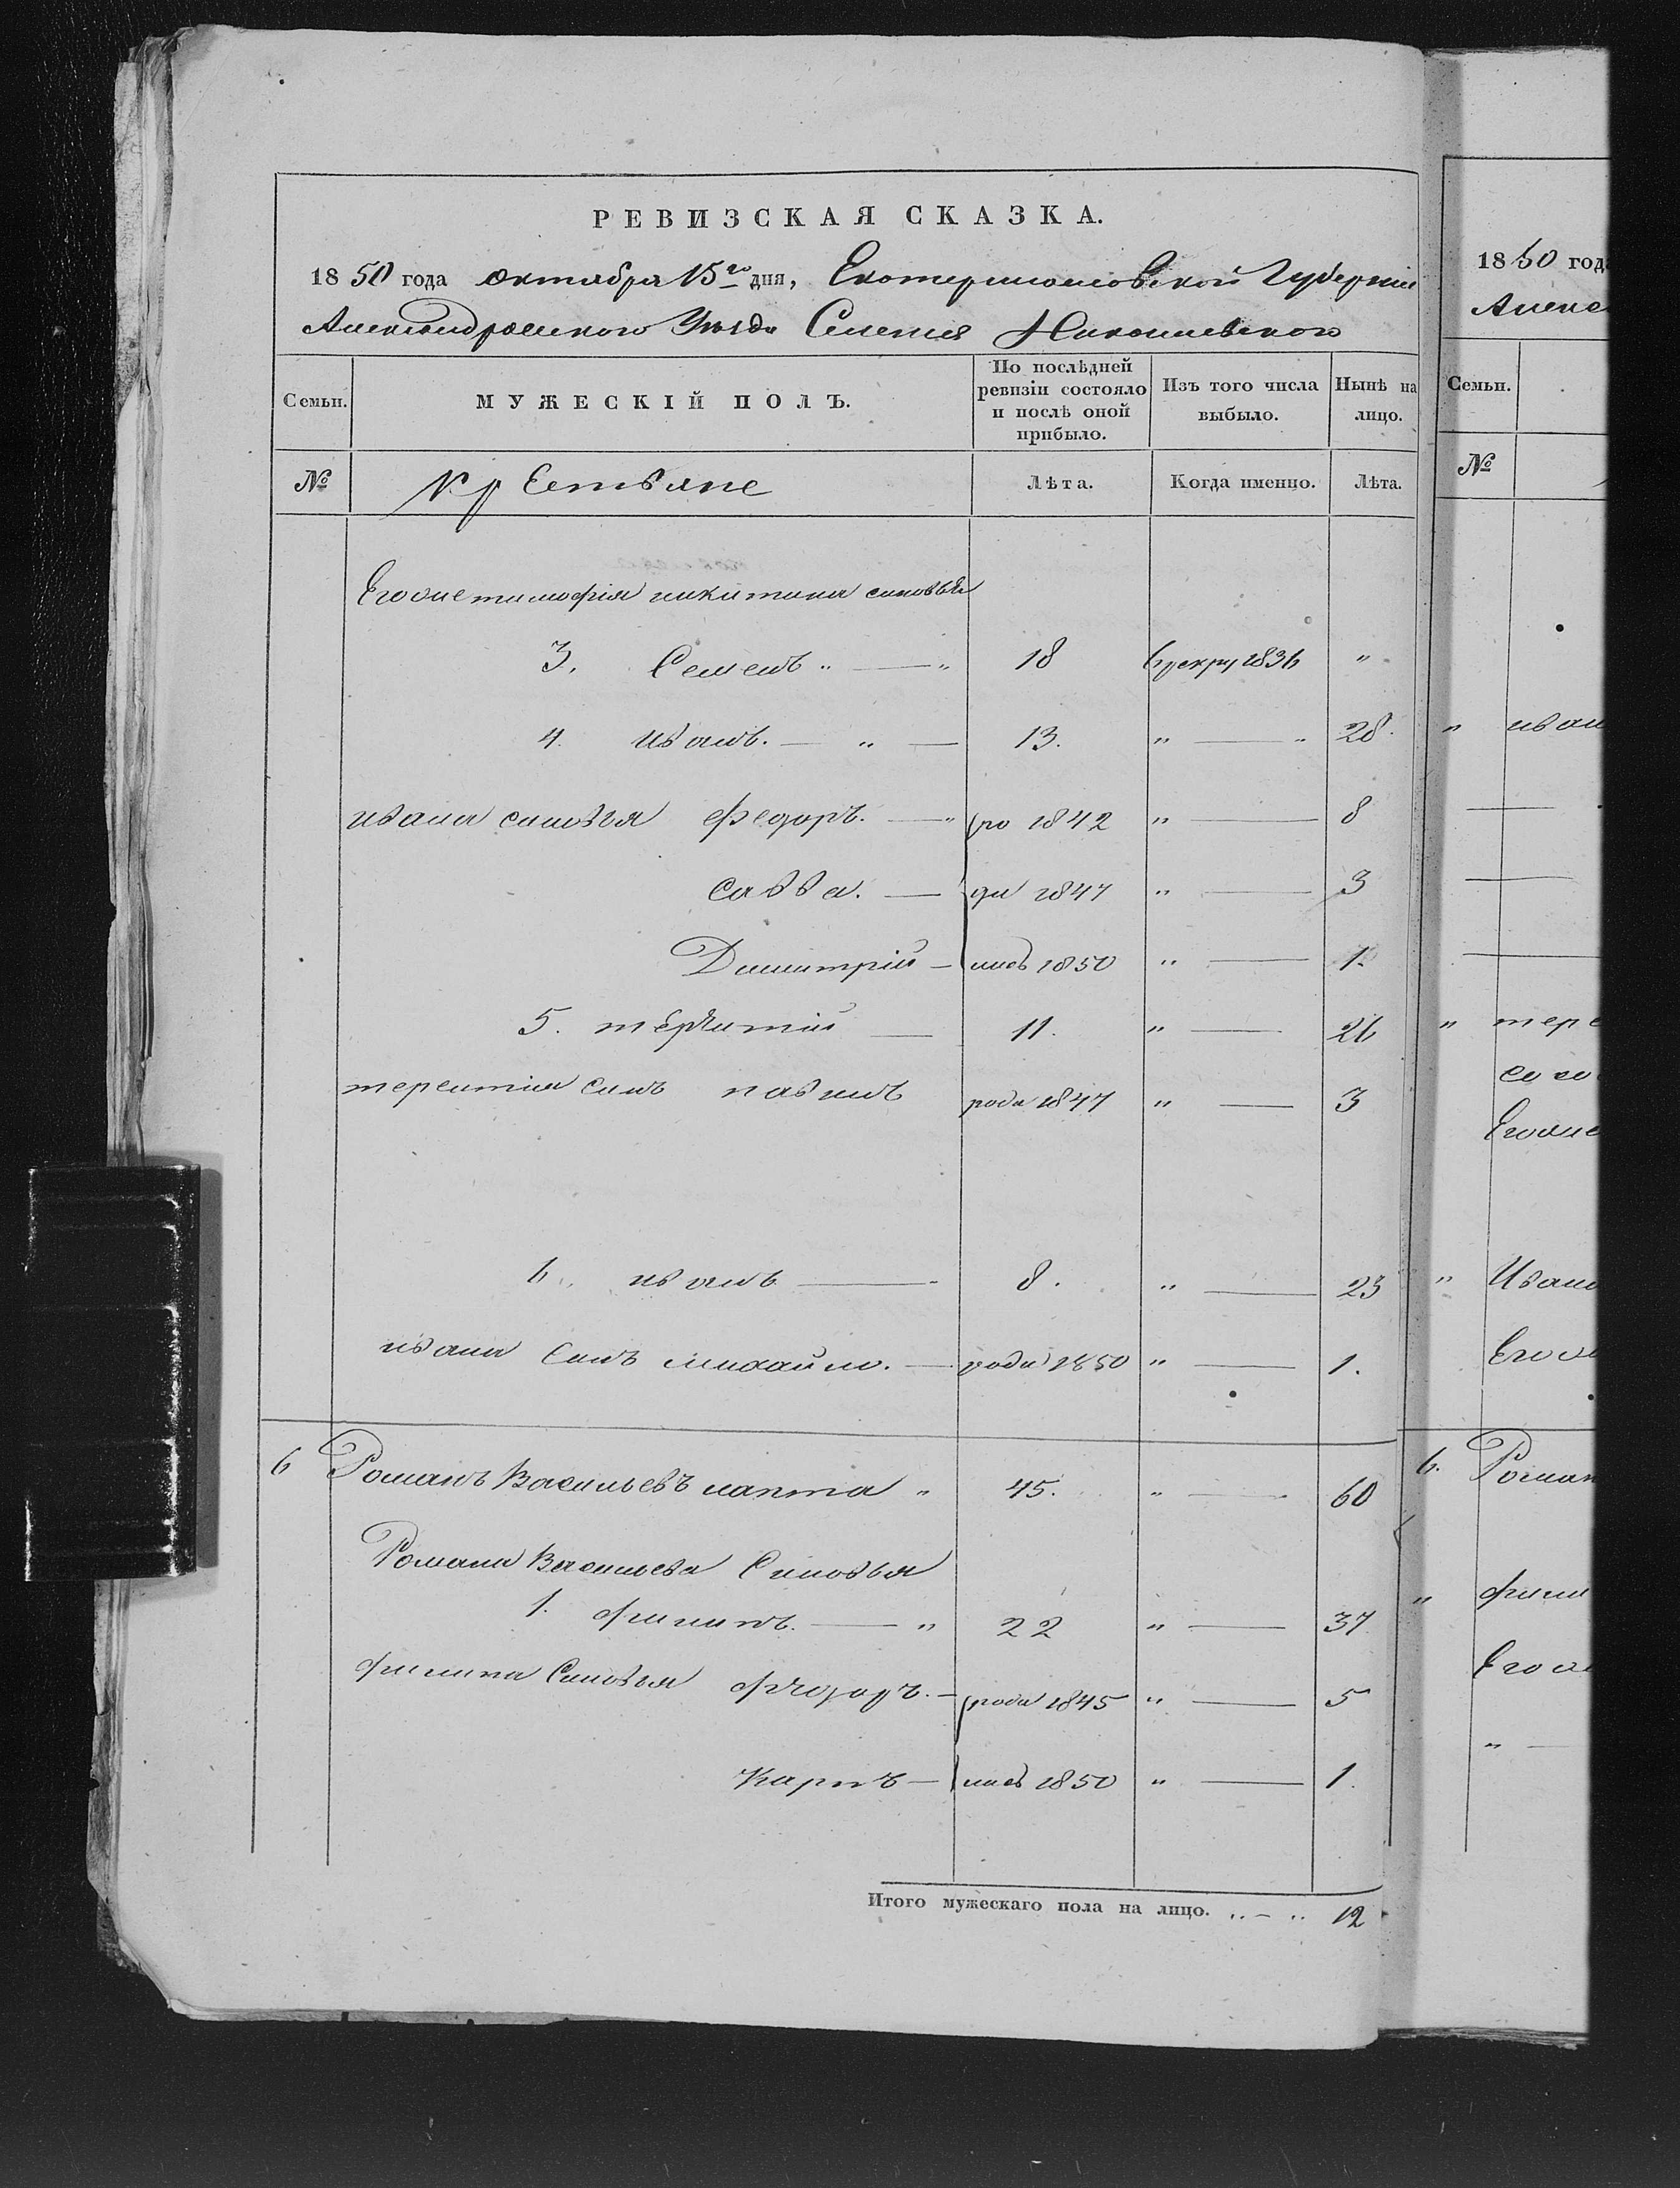 РЕВИЗСКАЯ СКАЗКА.
1850 года октября 15го дня, Екатеринославской Губерніи
Александровского Уезда Селения Николаевского
Семьи.
МУЖЕСКІЙ ПОЛЪ.
По послѣдней ревизіи состояло и послѣ оной прибыло.
Изъ того числа выбыло.
Нынѣ на лицо.
№ Крестьяне Лѣта. Когда именно. Лѣта.
Егоже тимофія никитина синовья
3. Семенъ " — " 18 врекру 1836 "
4. иванъ. — " — 13. " — " 28.
ивана синовья федоръ. — " ро 1842 " — 8
савва. — ди 1847 " — 3
Димитрій — лись 1850 " — 1.
5. терентій — 11. " — 26
терентия синъ павилъ роди 1847 " — 3
6. иванъ — 8. " — 23
ивана синъ михайло. — роди 1850 " — 1.
6 Романъ Васильевъ лапта " 45. " — 60
Романа Васильева Синовья
1. филипъ. — " 22 " — 37
филипа Синовья фѣодоръ. — роди 1845 " — 5
Карпъ — лись 1850 " — 1.
Итого мужескаго пола на лицо. " — " 12
1850 года
Алекс
Семьи.
№
" иван
" тере
Егоже
" Иван
6. Роман
" фили